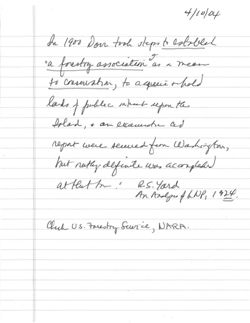 4/10/04
In 1900 Dorr took steps to establish
"a forestry association" as a means
to conservation, to acquire & hold
lands of public interest upon the
Island, & an examination and
report were secured from Washington,
but nothing definite was accomplished
at that time." R.S. Yard
An Analysis of LNP, 1924.
Check U.S. Forestry Service, NARA.